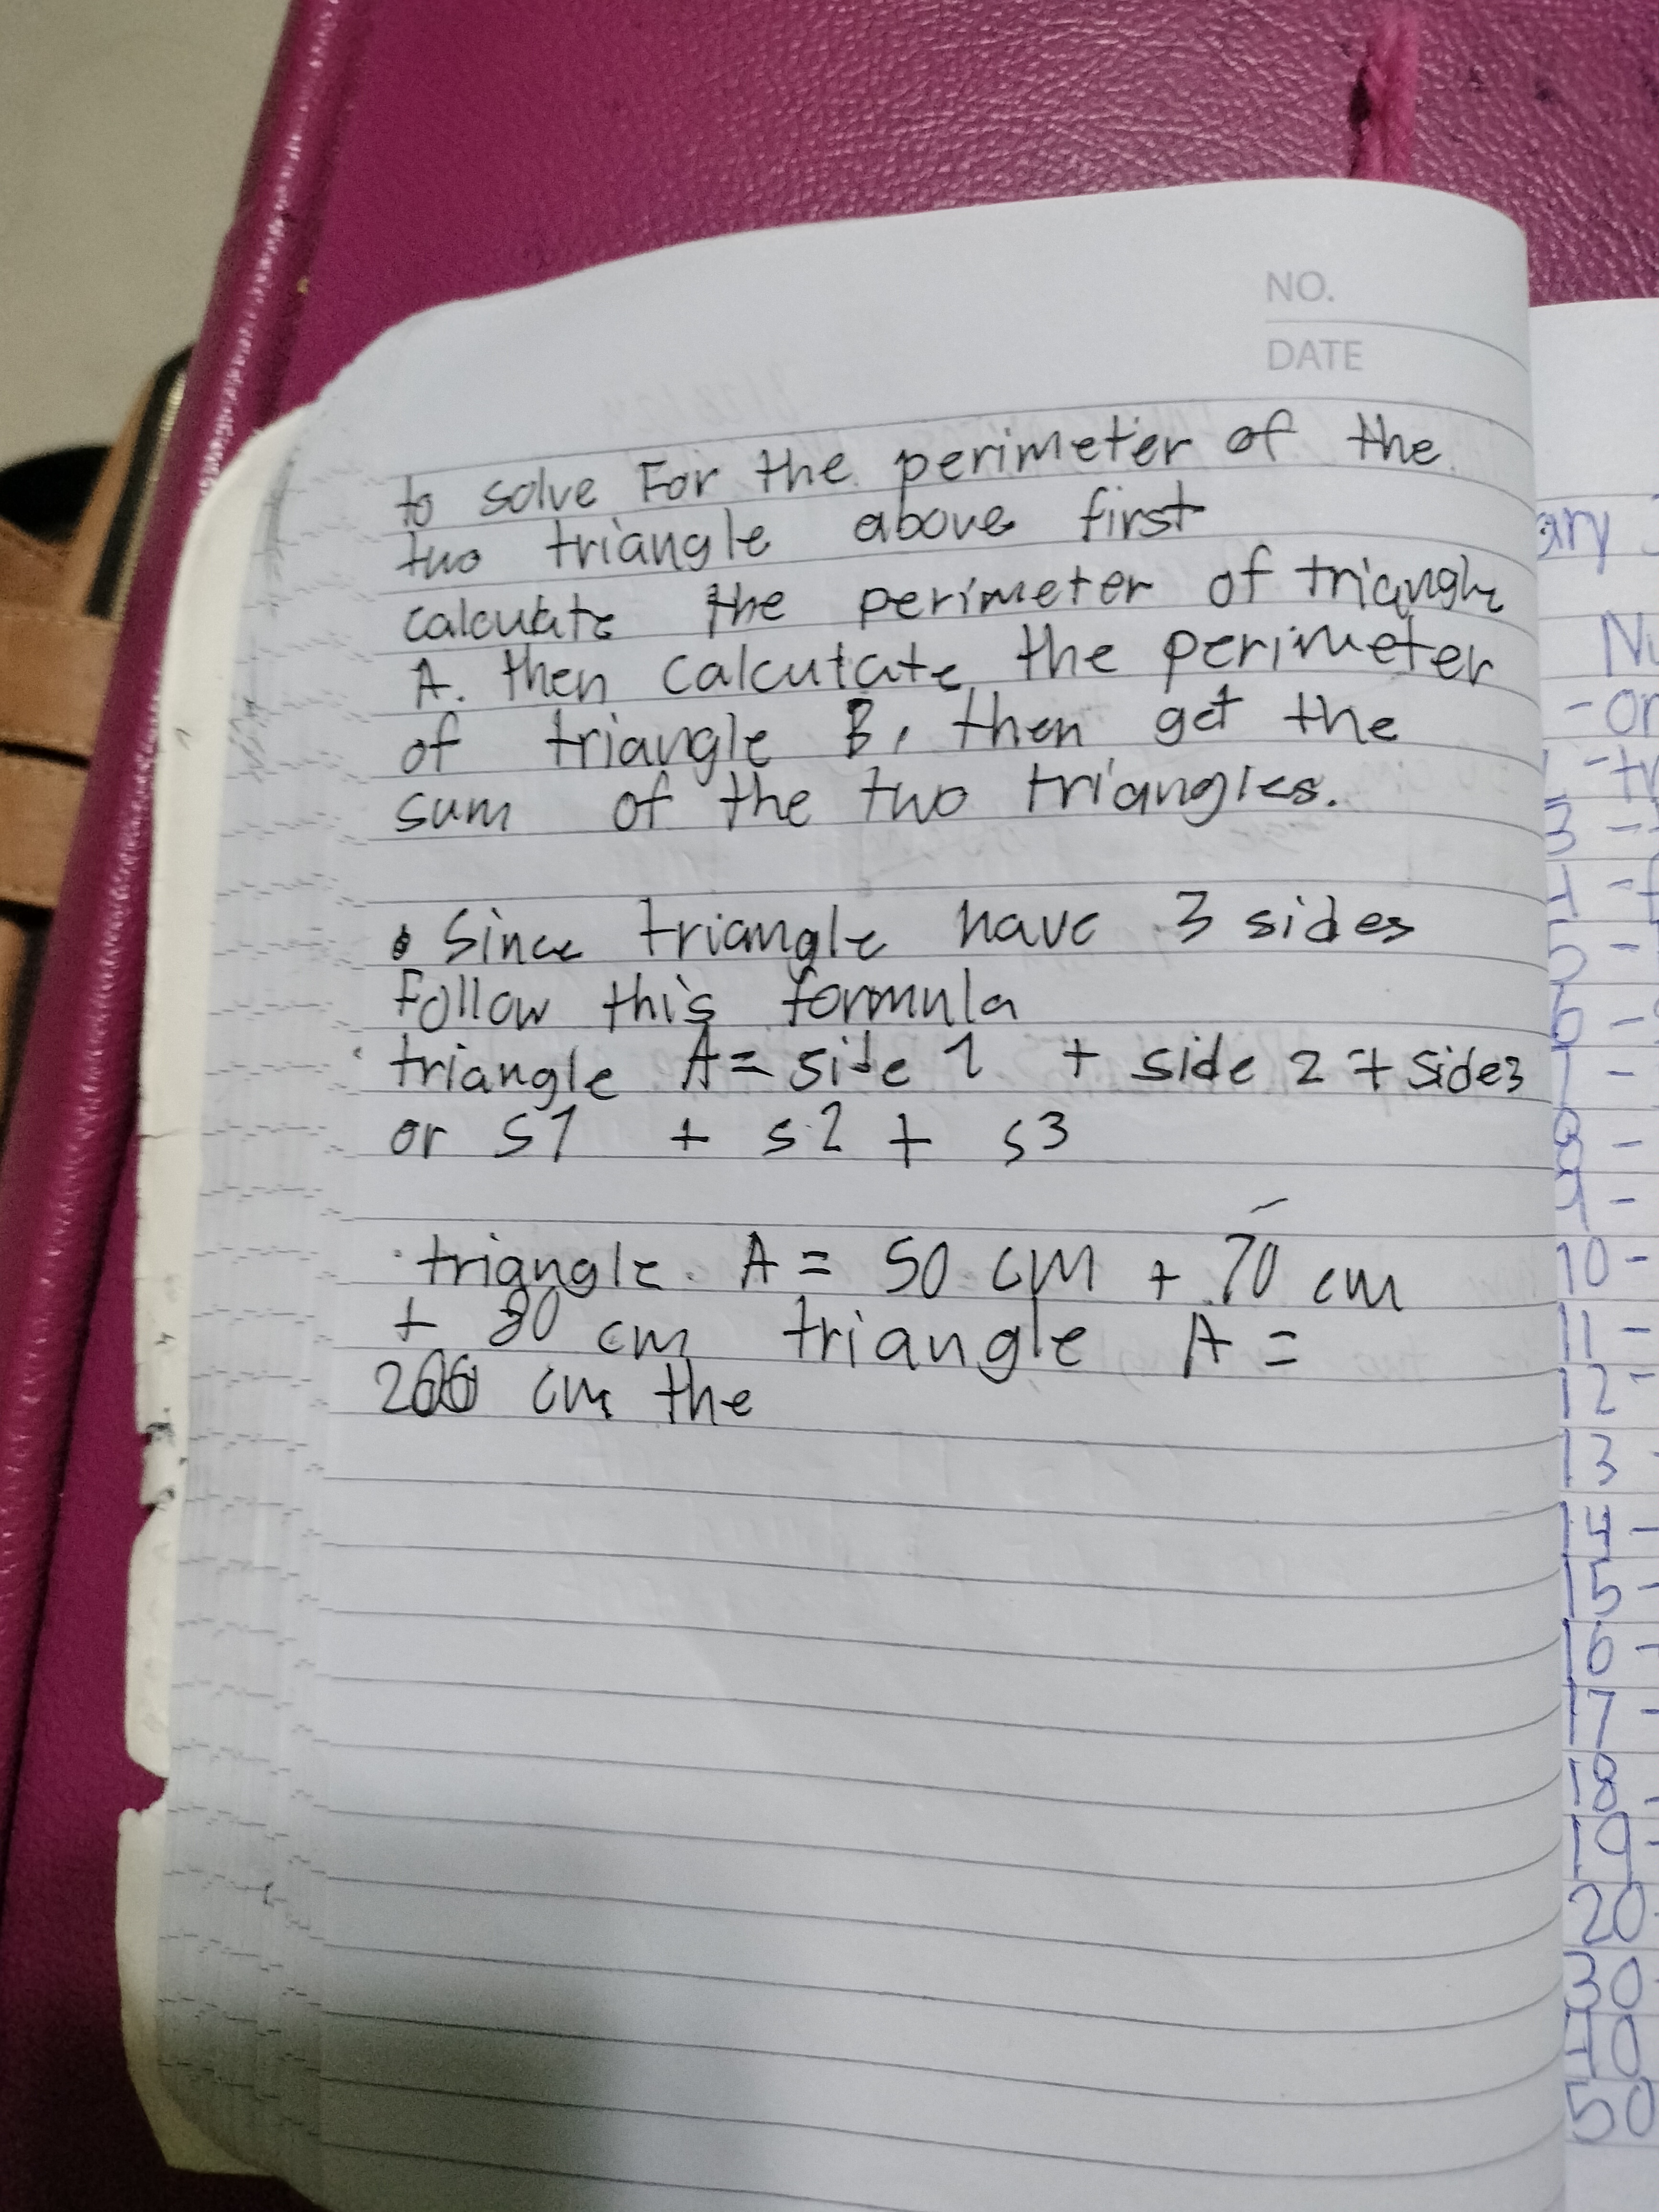 NO.
DATE
to solve For the perimeter of the
two triangle above first
calculate the perimeter of triangle
A. then calcutate the perimeter
of triangle B, then get the
sum of the two triangles.
Since triangle have 3 sides
Follow this formula
triangle A = side 1 + side 2 + side3
or s1 + s2 + s3
triangle. A = 50 cm + 70 cm
+ 80 cm triangle A =
200 cm the
ary
Nu
- or
- tr
3 -
5 -
6 -
8 -
9 -
10 -
11 -
12 -
13 -
14 -
15 -
16 -
17 -
18 -
19 -
20 -
30 -
40
50